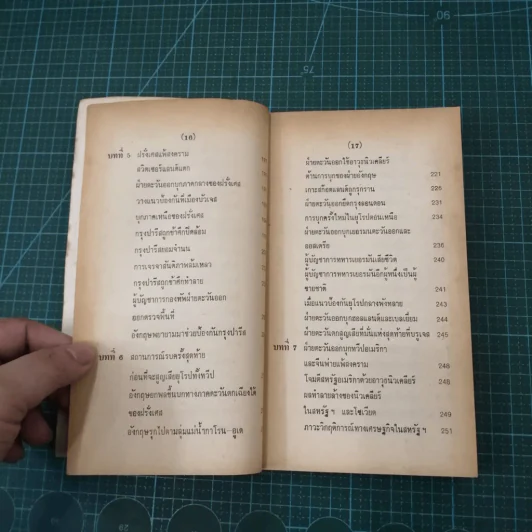 (16)
บทที่ 5 ฝรั่งเศสแพ้สงคราม
สวิตเซอร์แลนด์แตก
ฝ่ายตะวันออกบุกภาคกลางของฝรั่งเศส
วางแนวป้องกันที่เมืองบัวเจส
บุกภาคเหนือของฝรั่งเศส
กรุงปารีสถูกข้าศึกปิดล้อม
กรุงปารีสยอมจำนน
การเจรจาสันติภาพล้มเหลว
กรุงปารีสถูกข้าศึกทำลาย
ผู้บัญชาการกองทัพฝ่ายตะวันออก
ออกตรวจพื้นที่
อังกฤษพยายามมาช่วยป้องกันกรุงปารีส
บทที่ 6 สถานการณ์รบครั้งสุดท้าย
ก่อนที่จะสูญเสียยุโรปทั้งทวีป
อังกฤษยกพลขึ้นบกทางภาคตะวันตกเฉียงใต้
ของฝรั่งเศส
อังกฤษรุกไปตามลุ่มแม่น้ำกาโรน-ลูเด
(17)
ฝ่ายตะวันออกใช้อาวุธนิวเคลียร์
ต้านการบุกของฝ่ายอังกฤษ 221
เกาะสก๊อตแลนด์ถูกรุกราน 231
ฝ่ายตะวันออกยึดกรุงลอนดอน 232
การบุกครั้งใหม่ในยุโรปตอนเหนือ 234
ฝ่ายตะวันออกบุกเยอรมนตะวันออกและ
ออสเตรีย 236
ผู้บัญชาการทหารเยอรมันเสียชีวิต 240
ผู้บัญชาการทหารเยอรมันอีกผู้หนึ่งเป็นผู้
ขายชาติ 241
เมื่อแนวป้องกันยุโรปกลางพังทลาย 243
ฝ่ายตะวันออกบุกฮอลแลนด์และเบลเยี่ยม 244
ฝ่ายตะวันตกสูญเสียที่มั่นแห่งสุดท้ายที่บรูเจส 245
บทที่ 7 ฝ่ายตะวันออกบุกทวีปอเมริกา
และจีนพ่ายแพ้สงคราม 248
โจมตีสหรัฐอเมริกาด้วยอาวุธนิวเคลียร์ 248
ผลทำลายล้างของนิวเคลียร์
ในสหรัฐ ฯ และโซเวียต 249
ภาวะวิกฤติการณ์ทางเศรษฐกิจในสหรัฐ ฯ 251